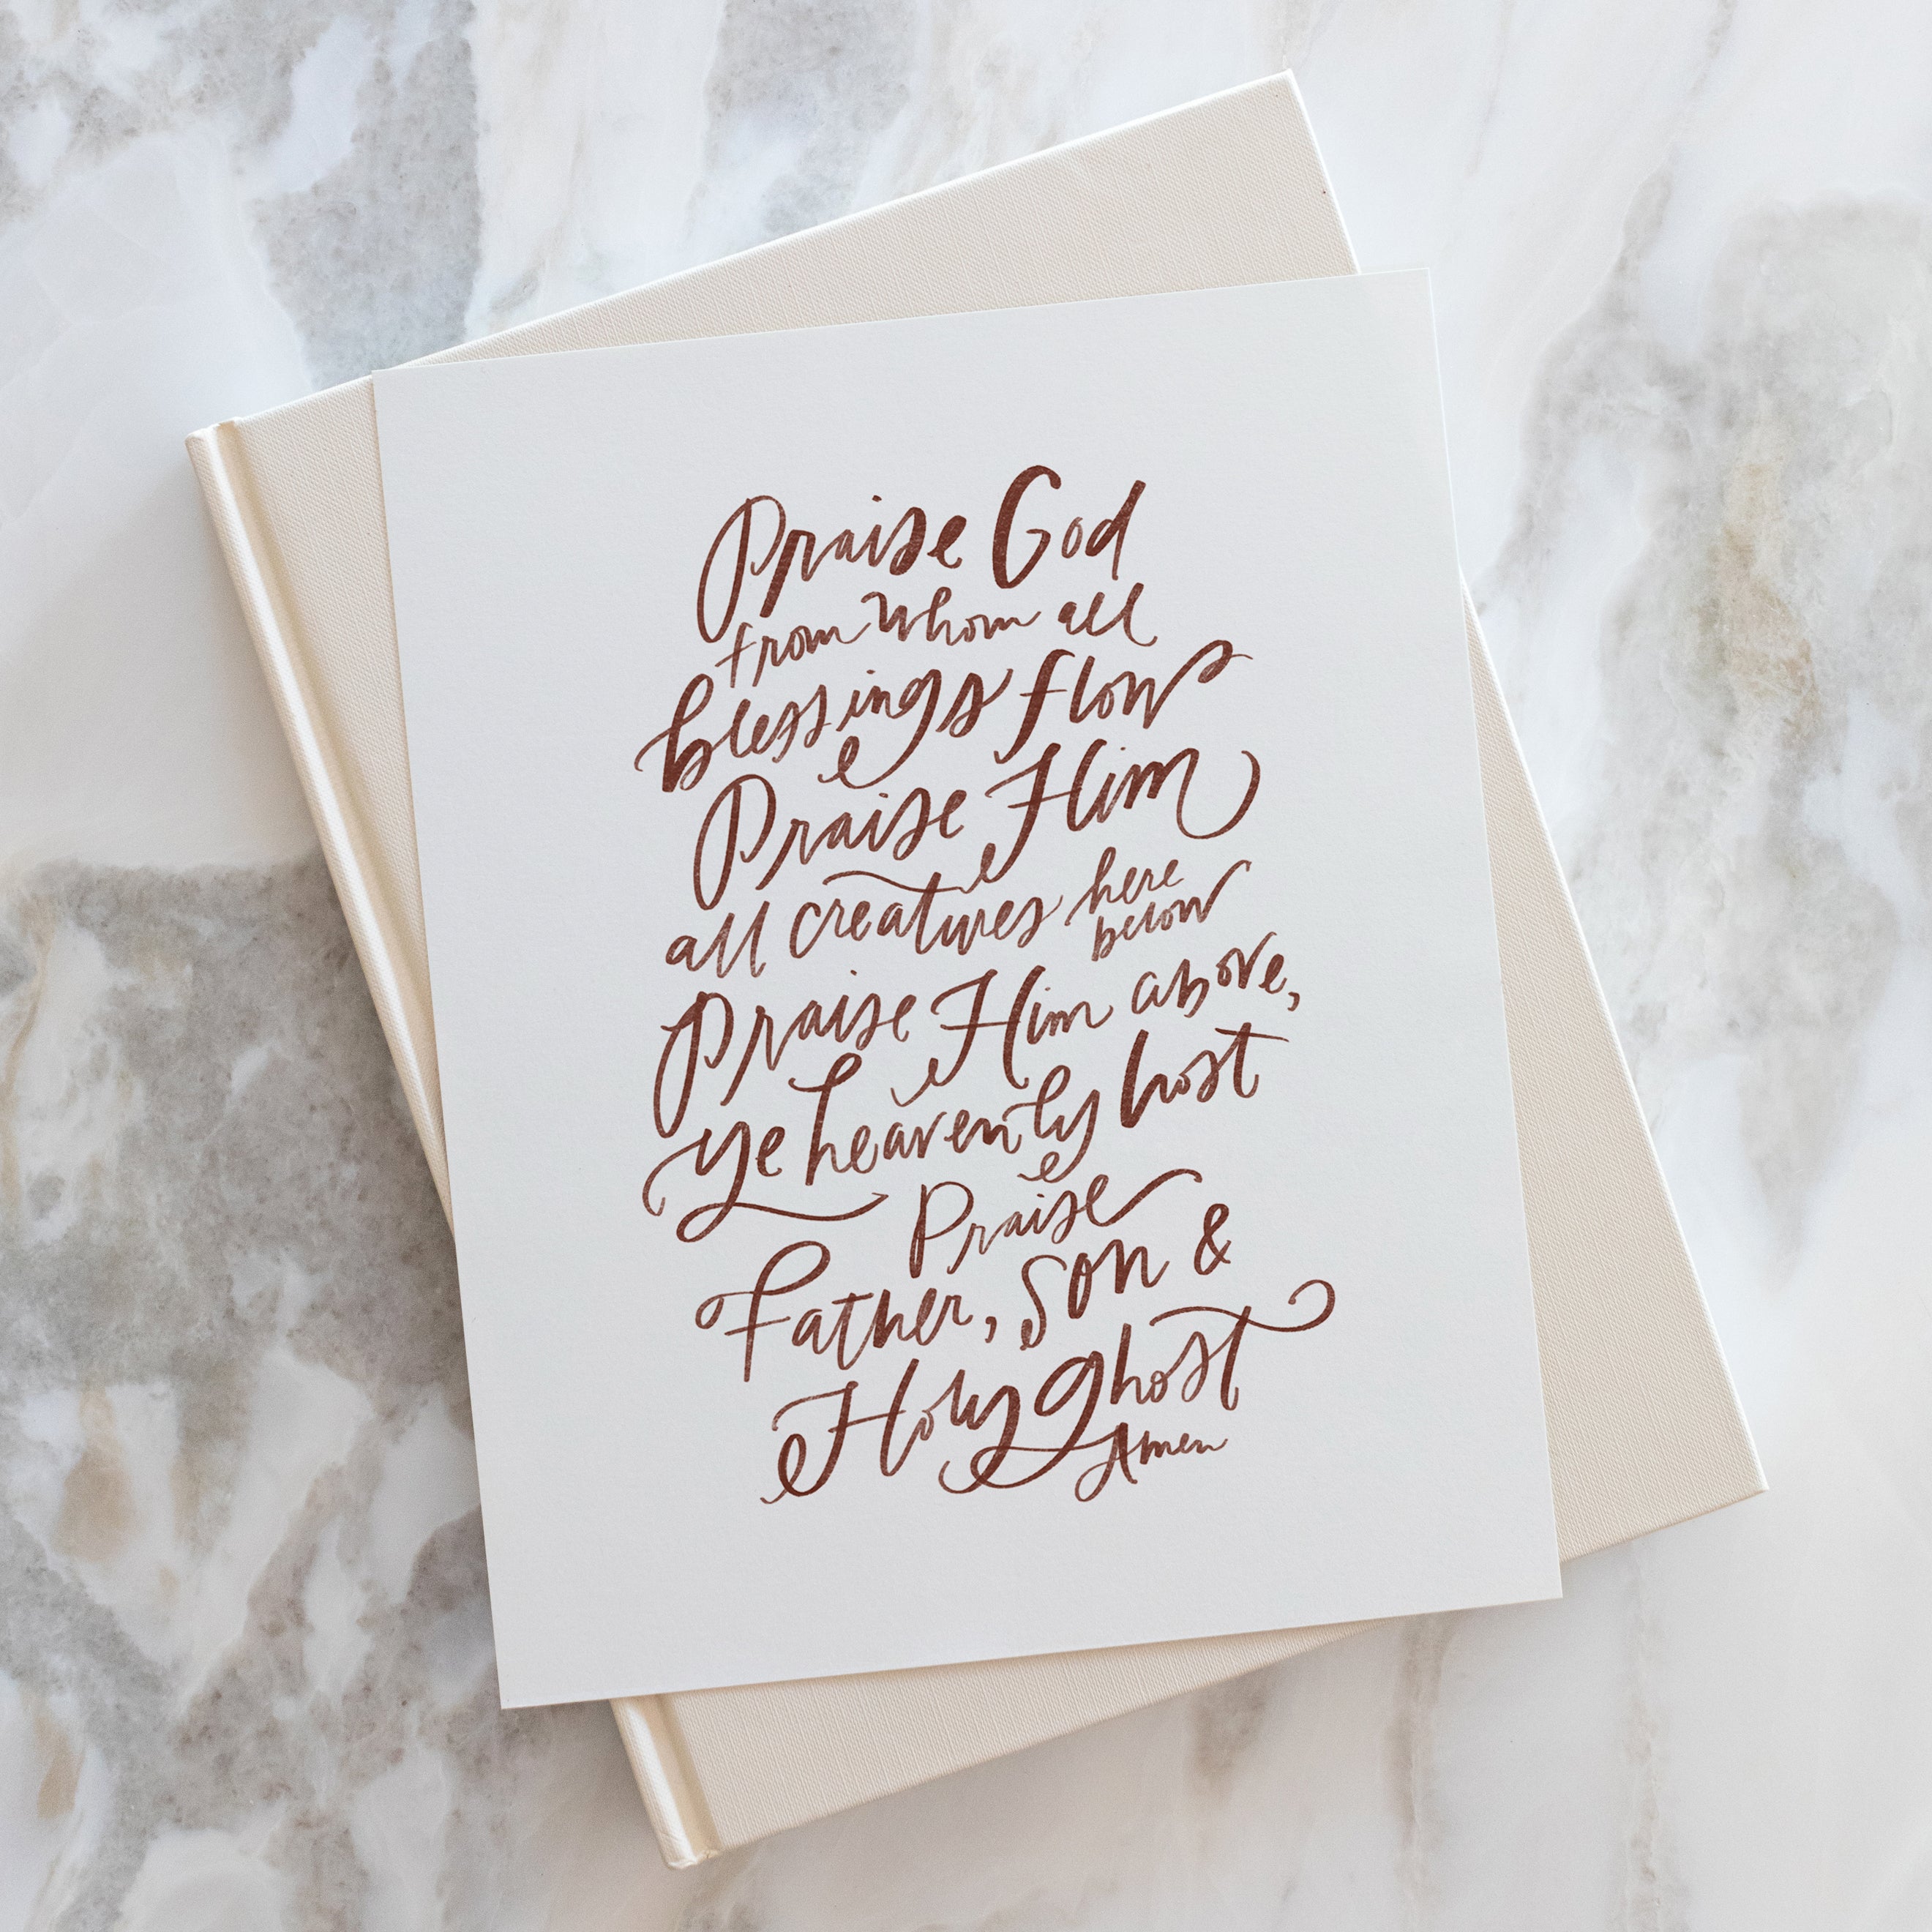 Praise God
from whom all
blessings flow
Praise Him
all creatures here
below
Praise Him above,
ye heavenly host
Praise
Father, Son &
Holy Ghost
Amen